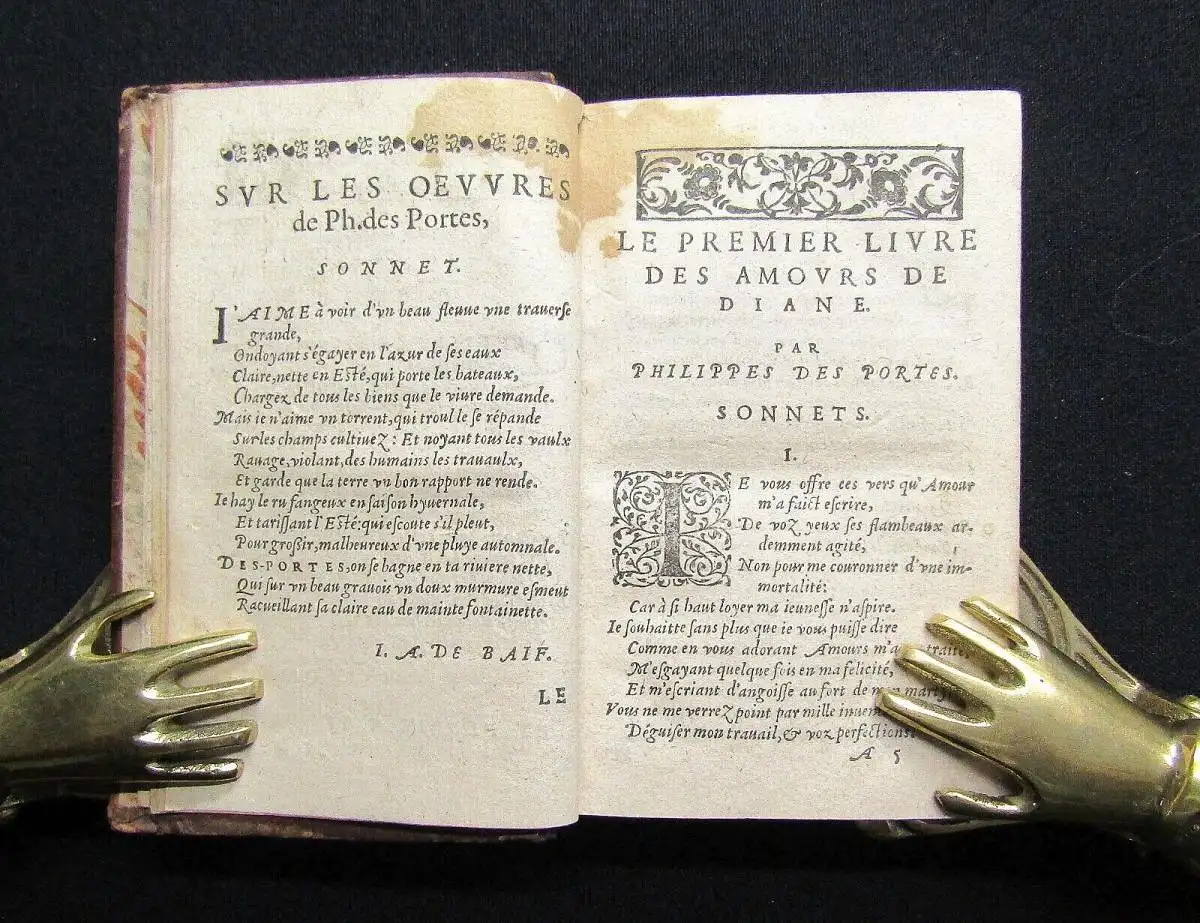 SVR LES OEVVRES
de Ph.des Portes,
SONNET.
I'AIME à voir d'vn beau fleuue vne trauerse
grande,
Ondoyant s'égayer en l'azur de ses eaux
Claire,nette en Esté,qui porte les bateaux,
Chargez de tous les biens que le viure demande.
Mais ie n'aime vn torrent,qui troul le se répande
Sur les champs cultiuez: Et noyant tous les vaulx
Rauage,violant,des humains les trauaulx,
Et garde que la terre vn bon rapport ne rende.
Ie hay le ru fangeux en saison hyuernale,
Et tarissant l'Esté:qui escoute s'il pleut,
Pour grossir,malheureux d'vne pluye automnale.
DES-PORTES,on se bagne en ta riuiere nette,
Qui sur vn beau grauois vn doux murmure esmeut
Racueillant sa claire eau de mainte fontainette.
I. A. DE BAIF.
LE
LE PREMIER LIVRE
DES AMOVRS DE
DIANE.
PAR
PHILIPPES DES PORTES.
SONNETS.
I.
IE vous offre ces vers qu'Amour
m'a faict escrire,
De voz yeux ses flambeaux ar-
demment agité,
Non pour me couronner d'vne im-
mortalité:
Car à si haut loyer ma ieunesse n'aspire.
Ie souhaitte sans plus que ie vous puisse dire
Comme en vous adorant Amours m'a
M'esgayant quelque fois en ma felicité,
Et m'escriant d'angoisse au fort de
Vous ne me verrez point par mille
Déguiser mon trauail,& voz perfections
A 5